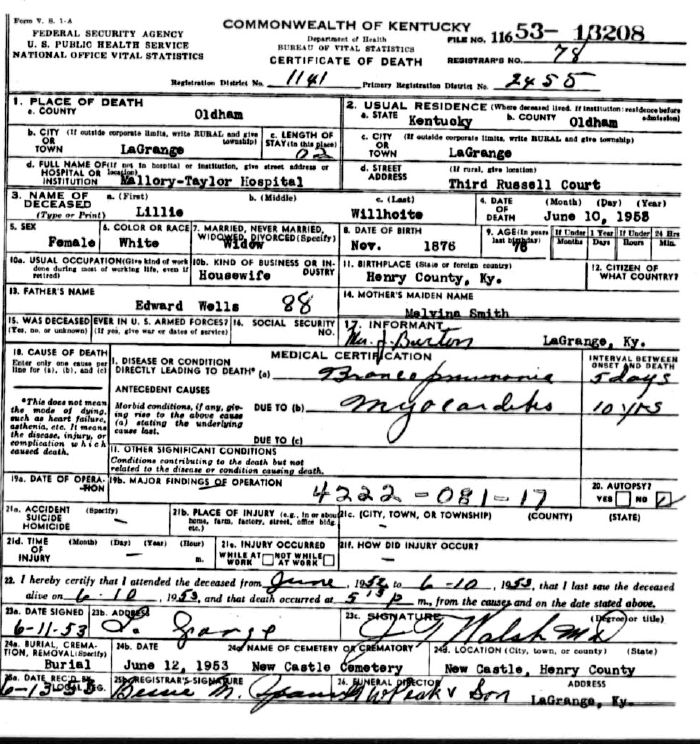 Form V. S. 1-A
FEDERAL SECURITY AGENCY
U. S. PUBLIC HEALTH SERVICE
NATIONAL OFFICE VITAL STATISTICS
COMMONWEALTH OF KENTUCKY
Department of Health
BUREAU OF VITAL STATISTICS
CERTIFICATE OF DEATH
FILE NO. 116 53- 13208
REGISTRAR'S NO. 78
Registration District No. 1141 Primary Registration District No. 2455
1. PLACE OF DEATH
a. COUNTY Oldham
2. USUAL RESIDENCE (Where deceased lived. If institution: residence before admission)
a. STATE Kentucky b. COUNTY Oldham
b. CITY (If outside corporate limits, write RURAL and give township)
OR
TOWN LaGrange
c. LENGTH OF STAY (in this place)
c. CITY (If outside corporate limits, write RURAL and give township)
OR
TOWN LaGrange
d. FULL NAME OF (If not in hospital or institution, give street address or location)
HOSPITAL OR
INSTITUTION Mallory-Taylor Hospital
d. STREET ADDRESS (If rural, give location)
Third Russell Court
3. NAME OF DECEASED (Type or Print)
a. (First) b. (Middle) c. (Last)
Lillie Willhoite
4. DATE OF DEATH (Month) (Day) (Year)
June 10, 1953
5. SEX
Female
6. COLOR OR RACE
White
7. MARRIED, NEVER MARRIED, WIDOWED, DIVORCED (Specify)
Widow
8. DATE OF BIRTH
Nov. 1876
9. AGE (In years last birthday) 76
If Under 1 Year Months Days
If Under 24 Hrs Hours Min.
10a. USUAL OCCUPATION (Give kind of work done during most of working life, even if retired)
10b. KIND OF BUSINESS OR INDUSTRY
Housewife
11. BIRTHPLACE (State or foreign country)
Henry County, Ky.
12. CITIZEN OF WHAT COUNTRY?
13. FATHER'S NAME
Edward Wells 88
14. MOTHER'S MAIDEN NAME
Melvina Smith
15. WAS DECEASED EVER IN U. S. ARMED FORCES?
(Yes, no, or unknown) (If yes, give war or dates of service)
16. SOCIAL SECURITY NO.
17. INFORMANT
Mrs. J. Burton LaGrange, Ky.
18. CAUSE OF DEATH
Enter only one cause per line for (a), (b), and (c)
*This does not mean the mode of dying, such as heart failure, asthenia, etc. It means the disease, injury, or complication which caused death.
MEDICAL CERTIFICATION
INTERVAL BETWEEN ONSET AND DEATH
I. DISEASE OR CONDITION
DIRECTLY LEADING TO DEATH* (a) 5 days
ANTECEDENT CAUSES
Morbid conditions, if any, giving rise to the above cause (a) stating the underlying cause last.
DUE TO (b) Myocarditis 10 yrs
DUE TO (c)
II. OTHER SIGNIFICANT CONDITIONS
Conditions contributing to the death but not related to the disease or condition causing death.
19a. DATE OF OPERATION
19b. MAJOR FINDINGS OF OPERATION
4222-081-17
20. AUTOPSY?
YES NO
21a. ACCIDENT (Specify)
SUICIDE
HOMICIDE
21b. PLACE OF INJURY (e.g., in or about home, farm, factory, street, office bldg., etc.)
21c. (CITY, TOWN, OR TOWNSHIP) (COUNTY) (STATE)
21d. TIME OF INJURY (Month) (Day) (Year) (Hour)
m.
21e. INJURY OCCURRED
WHILE AT WORK NOT WHILE AT WORK
21f. HOW DID INJURY OCCUR?
22. I hereby certify that I attended the deceased from June, 1952 to 6-10, 1953, that I last saw the deceased
alive on 6-10, 1953, and that death occurred at m., from the causes and on the date stated above.
23a. DATE SIGNED
6-11-53
23b. ADDRESS
23c. SIGNATURE (Degree or title)
J T Walsh MD
24a. BURIAL, CREMATION, REMOVAL (Specify)
Burial
24b. DATE
June 12, 1953
24c NAME OF CEMETERY OR CREMATORY
New Castle Cemetery
24d. LOCATION (City, town, or county) (State)
New Castle, Henry County
25a. DATE REC'D BY LOCAL REG.
6-13-53
25b. REGISTRAR'S SIGNATURE
Bessie M.
26. FUNERAL DIRECTOR
W Peak & Son
ADDRESS
LaGrange, Ky.